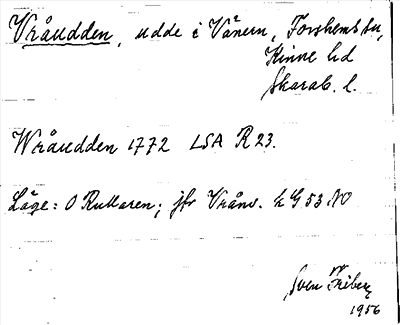 Vråudden, udde i Vänern, Forshems sn,
Kinne hd
Skarab. l.
Wråudden 1772 LSA R 23.
Läge: O Ruttaren; jfr Vråns. k G 53 NO
Sven Friberg
1956